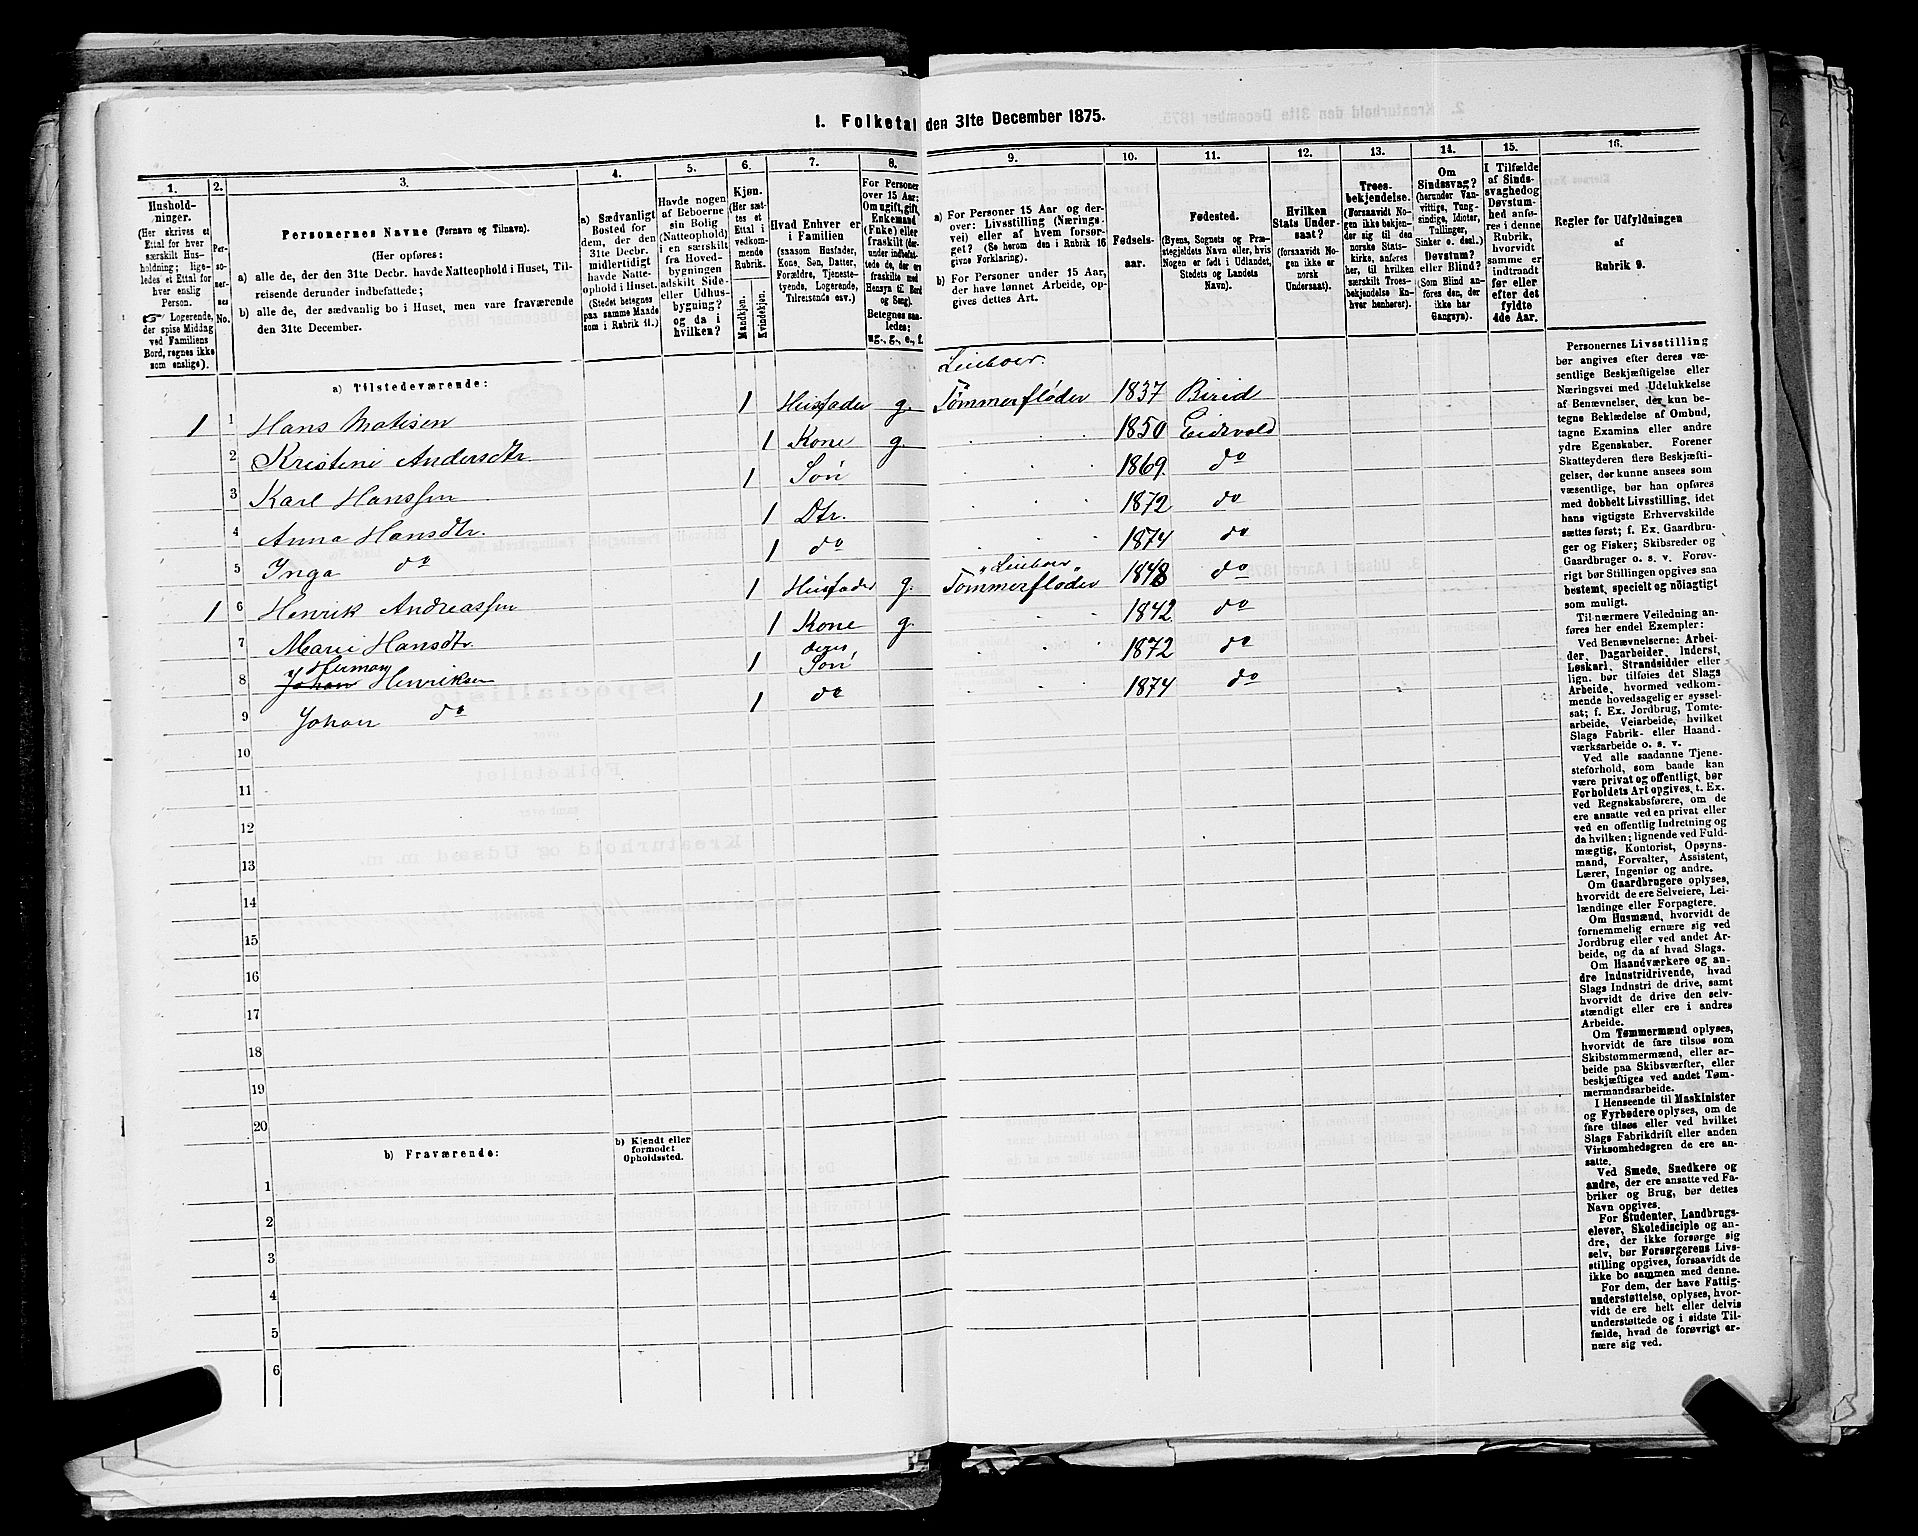 I. Folketal den 31te December 1875.
1. 2. 3. 4. 5. 6. 7. 8. 9. 10. 11. 12. 13. 14. 15. 16.
Hushold-
ninger.
(Her skrives et
Ettal for hver
særskilt Hus-
holdning; lige-
ledes et Ettal for
hver enslig
Person.
☞ Logerende,
der spise Middag
ved Familiens
Bord, regnes ikke
som enslige).
Per-
so-
ner-
nes
No.
Personernes Navne (Fornavn og Tilnavn).
(Her opføres:
a) alle de, der den 31te Decbr. havde Natteophold i Huset, Til-
reisende derunder indbefattede;
b) alle de, der sædvanlig bo i Huset, men vare fraværende
den 31te December.
a) Sædvanligt
Bosted for
dem, der den
31te Decbr.
midlertidigt
havde Natte-
ophold i Huset.
(Stedet betegnes
paa samme Maade
som i Rubrik 11.)
Havde nogen
af Beboerne
sin Bolig
(Natteophold)
i en særskilt
fra Hoved-
bygningen
adskilt Side-
eller Udhus-
bygning?
og da i
hvilken?
Kjøn.
(Her sæt-
tes et
Ettal i
vedkom-
mende
Rubrik.
Mandkjøn.
Kvindekjøn.
Hvad Enhver er
i Familien
(saasom Husfader,
Kone, Søn, Datter,
Forældre, Tjeneste-
tyende, Logerende,
Tilreisende osv.)
For Personer
over 15 Aar:
Om ugift, gift,
Enkemand
(Enke) eller
fraskilt (der-
under indbefat-
tede de, der ere
fraskilte med
Hensyn til Bord
og Seng).
Betegnes saa-
ledes:
ug., g., e., f.
a) For Personer 15 Aar og der-
over: Livsstilling (Nærings-
vei) eller af hvem forsør-
get? (Se herom den i Rubrik 16
givne Forklaring).
b) For Personer under 15 Aar,
der have lønnet Arbeide, op-
gives dettes Art.
Fødsels-
aar.
Fødested.
(Byens, Sognets og Præ-
stegjeldets Navn eller, hvis
Nogen er født i Udlandet,
Stedets og Landets
Navn).
Hvilken
Stats Under-
saat?
(forsaavidt No-
gen ikke er
norsk
Undersaat).
Troes-
bekjendelse.
(Forsaavidt No-
gen ikke bekjen-
der sig til den
norske Stats-
kirke, anføres
her, til hvilken
særskilt Troes-
bekjendelse En-
hver henhører).
Om
Sindssvag?
(herunder Van-
vittige, Tung-
sindige, Idioter,
Tullinger,
Sinker o. desl.).
Døvstum?
eller Blind?
(Som Blind an-
føres den, der
ikke har
Gangsyn).
I Tilfælde
af Sinds-
svaghed og
Døvstum-
hed anfø-
res i denne
Rubrik,
hvorvidt
samme er
indtraadt
før eller
efter det
fyldte
4de Aar.
Regler for Udfyldningen
af
Rubrik 9.
a) Tilstedeværende:
Leieboer.
1 1 Hans Matisen 1 Husfader g. Tømmerfløder 1837 Birid
2 Kristine Andersdtr. 1 Kone g 1850 Eidsvold
3 Karl Hanssen 1 Søn 1869. do
4 Anna Hansdtr. 1 Dtr. 1872 do
5 Inga do 1 do 1874 do
"Leieboer"
1 6 Henrik Andreassen 1 Husfader g. Tømmerfløder 1848 do
7 Marie Hansdtr. 1 Kone g. 1842 do
Herman deres
8 Johan Henriksen 1 Søn 1872 do
9 Johan do 1 do 1874 do
10
11
12
13
14
15
16
17
18
19
20
b) Fraværende:
b) Kjendt eller
formodet
Opholdssted.
1
2
3
4
5
6
Personernes Livsstilling
bør angives efter deres væ-
sentlige Beskjæftigelse eller
Næringsvei med Udelukkelse
af Benævnelser, der kun be-
tegne Beklædelse af Ombud,
tagne Examina eller andre
ydre Egenskaber. Forener
Skatteyderen flere Beskjæfti-
gelser, der kunne ansees som
væsentlige, bør han opføres
med dobbelt Livsstilling, idet
hans vigtigste Erhvervskilde
sættes først; f. Ex. Gaardbru-
ger og Fisker; Skibsreder og
Gaardbruger o. s. v. Forøv-
rigt bør Stillingen opgives saa
bestemt, specielt og nøiagtigt
som muligt.
Til nærmere Veiledning an-
føres her endel Exempler:
Ved Benævnelserne: Arbei-
der, Dagarbeider, Inderst,
Løskarl, Strandsidder eller
lign. bør tilføies det Slags
Arbeide, hvormed vedkom-
mende hovedsagelig er syssel-
sat; f. Ex. Jordbrug, Tomte-
arbeide, Veiarbeide, hvilket
Slags Fabrik- eller Haand-
værksarbeide o. s. v.
Ved alle saadanne Tjene-
steforhold, som baade kan
være privat og offentligt, bør
Forholdets Art opgives, t. Ex.
ved Regnskabsførere, om de
ere ansatte ved en privat eller
ved en offentlig Indretning og
da hvilken; lignende ved Fuld-
mægtig, Kontorist, Opsyns-
mand, Forvalter, Assistent,
Lærer, Ingeniør og andre.
Om Gaardbrugere oplyses,
hvorvidt de ere Selveiere, Lei-
lændinge eller Forpagtere.
Om Husmænd, hvorvidt de
fornemmelig ernære sig ved
Jordbrug eller ved andet Ar-
beide, og da af hvad Slags.
Om Haandværkere og an-
dre Industridrivende, hvad
Slags Industri de drive, samt
hvorvidt de drive den selv-
stændigt eller ere i andres
Arbeide.
Om Tømmermænd oplyses,
hvorvidt de fare tilsøs som
Skibstømmermænd, eller ar-
beide paa Skibsværfter, eller
beskjæftiges ved andet Tøm-
mermandsarbeide.
I Henseende til Maskinister
og Fyrbødere oplyses, om de
fare tilsøs eller ved hvilket
Slags Fabrikdrift eller anden
Virksomhedsgren de ere an-
satte.
Ved Smede, Snedkere og
andre, der ere ansatte ved Fa-
briker og Brug, bør dettes
Navn opgives.
For Studenter, Landbrugs-
elever, Skoledisciple og an-
dre, der ikke forsørge sig
selv, bør Forsørgerens Livs-
stilling opgives, forsaavidt de
ikke bo sammen med denne.
For dem, der have Fattig-
understøttelse, oplyses, hvor-
vidt de ere helt eller delvis
understøttede og i sidste Til-
fælde, hvad de forøvrigt er-
nære sig ved.